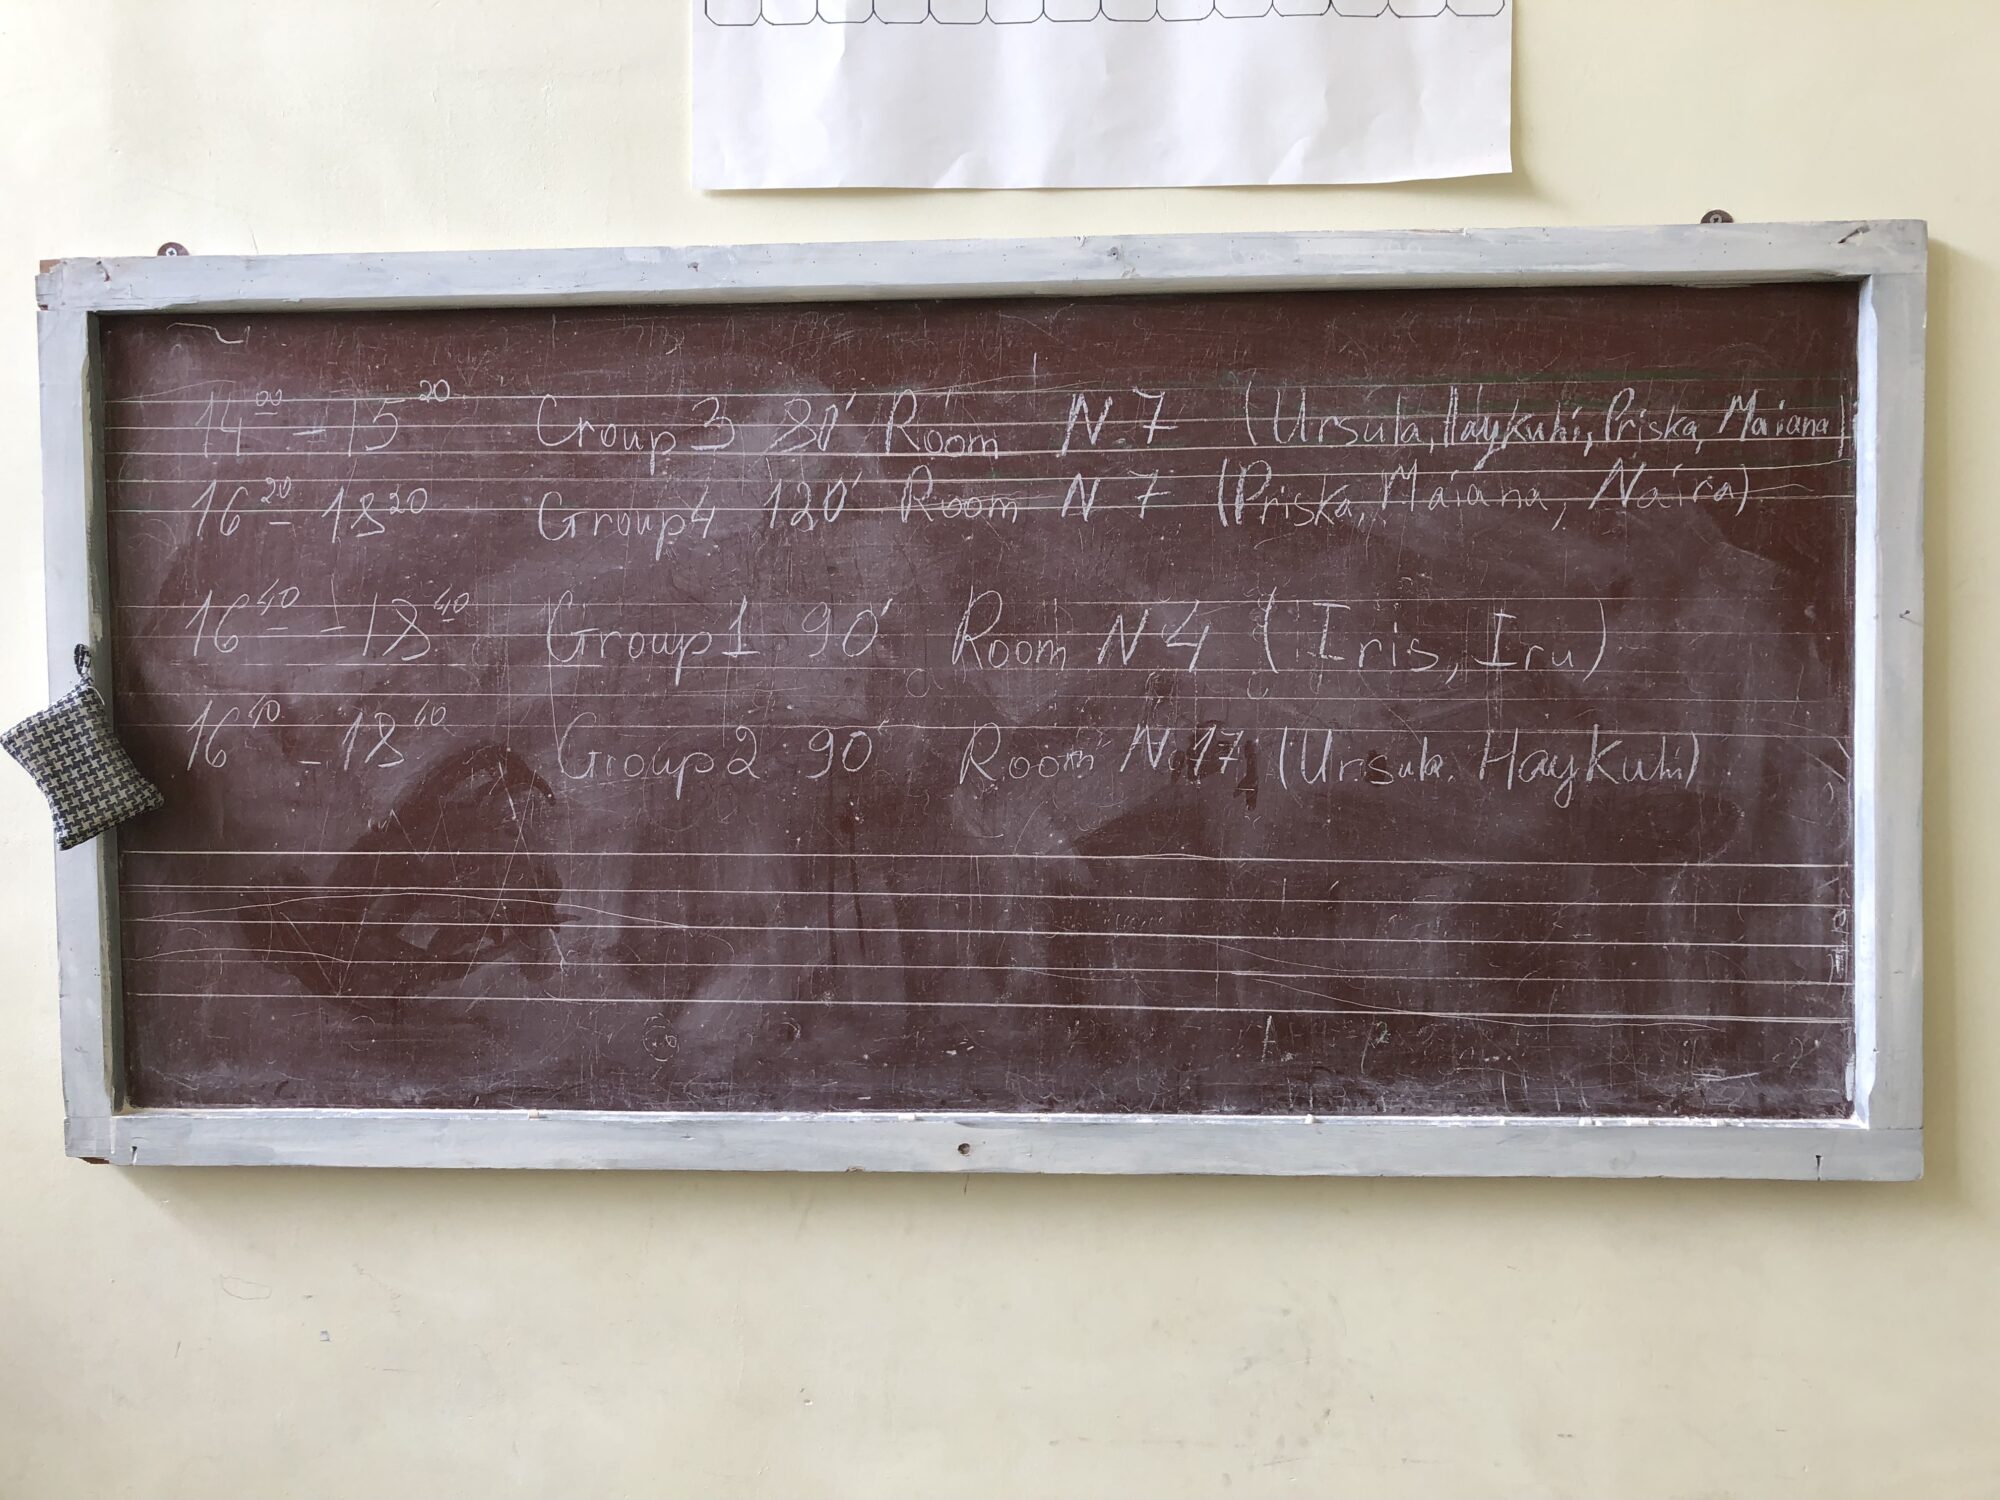 14⁰⁰ – 15²⁰ Group 3 80′ Room N.7 (Ursula, Haykuhi, Priska, Maiana)
16²⁰ – 18²⁰ Group 4 120′ Room N 7 (Priska, Maiana, Naira)
16⁴⁰ – 18⁴⁰ Group 1 90′ Room N 4 (Iris, Iru)
16⁴⁰ – 18⁴⁰ Group 2 90′ Room N.17 (Ursula. Haykuhi)